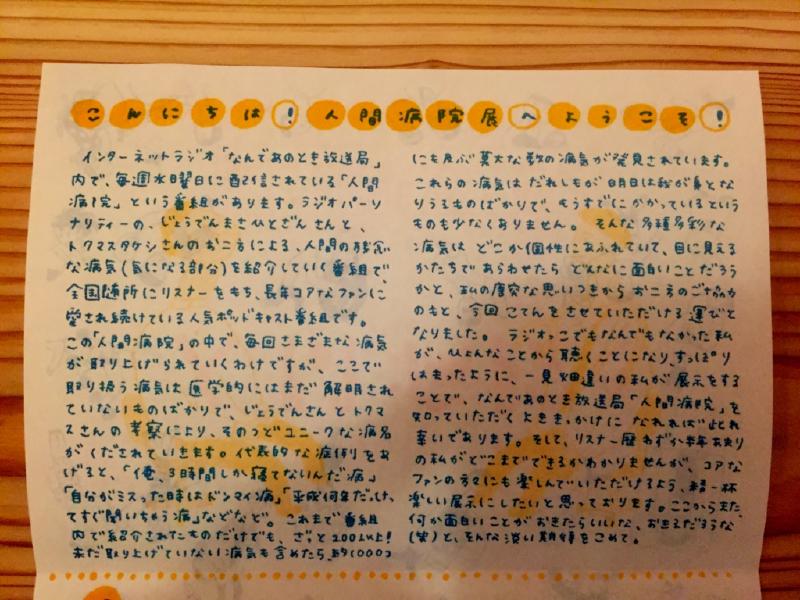 こんにちは!人間病院展へようこそ!
インターネットラジオ「なんであのとき放送局」
内で、毎週水曜日に配信されている「人間
病院」という番組があります。ラジオパーソ
ナリティーの、じょうでんまさひとざんさんと、
トクマスタケシさんのお二方による、人間の残念
な病気(気になる部分)を紹介していく番組で、
全国随所にリスナーをもち、長年コアなファンに
愛され続けている人気ポッドキャスト番組です。
この「人間病院」の中で、毎回さまざまな病気
が取り上げられていくわけですが、ここで
取り扱う病気は医学的にはまだ解明され
ていないものばかりで、じょうでんさんとトクマ
スさんの考察により、そのつどユニークな病名
がくだされていきます。代表的な症例をあ
げると、「俺、3時間しか寝てないんだ病」
「自分がミスった時はドンマイ病」「平成何年だっけ、
てすぐ聞いちゃう病」などなど。これまで番組
内で紹介されたものだけでも、ざっと200以上!
未だ取り上げていない病気も含めたら、約1000コ
にも及ぶ莫大な数の病気が発見されています。
これらの病気はだれしもが明日は我が身とな
りうるものばかりで、もうすでにかかっているという
ものも少なくありません。そんな多種多彩な
病気はどこか個性にあふれていて、目に見える
かたちであらわせたらどんなに面白いことだろう
かと、私の唐突な思いつきからお二方のご協力
のもと、今回こてんをさせていただける運びと
なりました。ラジオっこでもなんでもなかった私
が、ひょんなことから聴くことになり、すっぽり
はまったように、一見畑違いの私が展示をする
ことで、なんであのとき放送局「人間病院」を
知っていただくよききっかけになれれば此れ
幸いであります。そして、リスナー歴わずか半年あまり
の私がどこまでできるかわかりませんが、コアな
ファンの方々にも楽しんでいただけるよう、精一杯
楽しい展示にしたいと思っております。ここからまた
何か面白いことがおきたらいいな、おきるだろうな、
(笑)と、そんな淡い期待をこめて。